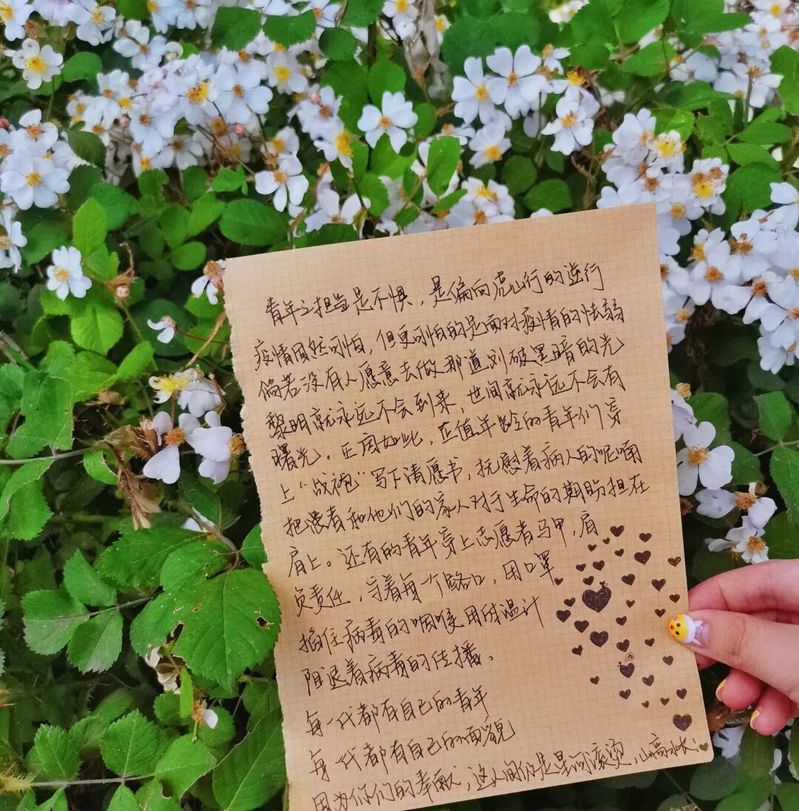 青年之担当是不惧，是偏向虎山行的逆行
疫情固然可怕，但更可怕的是面对疫情的怯弱
倘若没有人愿意去做那道划破黑暗的光
黎明就永远不会到来，世间就永远不会有
曙光。正因如此，正值年龄的青年们穿
上“战袍”写下请愿书，抚慰着病人的呢喃
把患者和他们的家人对于生命的期盼担在
肩上。还有的青年穿上志愿者马甲，肩
负责任，守着每个路口，用口罩
掐住病毒的咽喉用体温计
阻退着病毒的传播。
每一代都有自己的青年
每一代都有自己的面貌
因为你们的奉献，这人间仍是星河滚烫，山高水长。